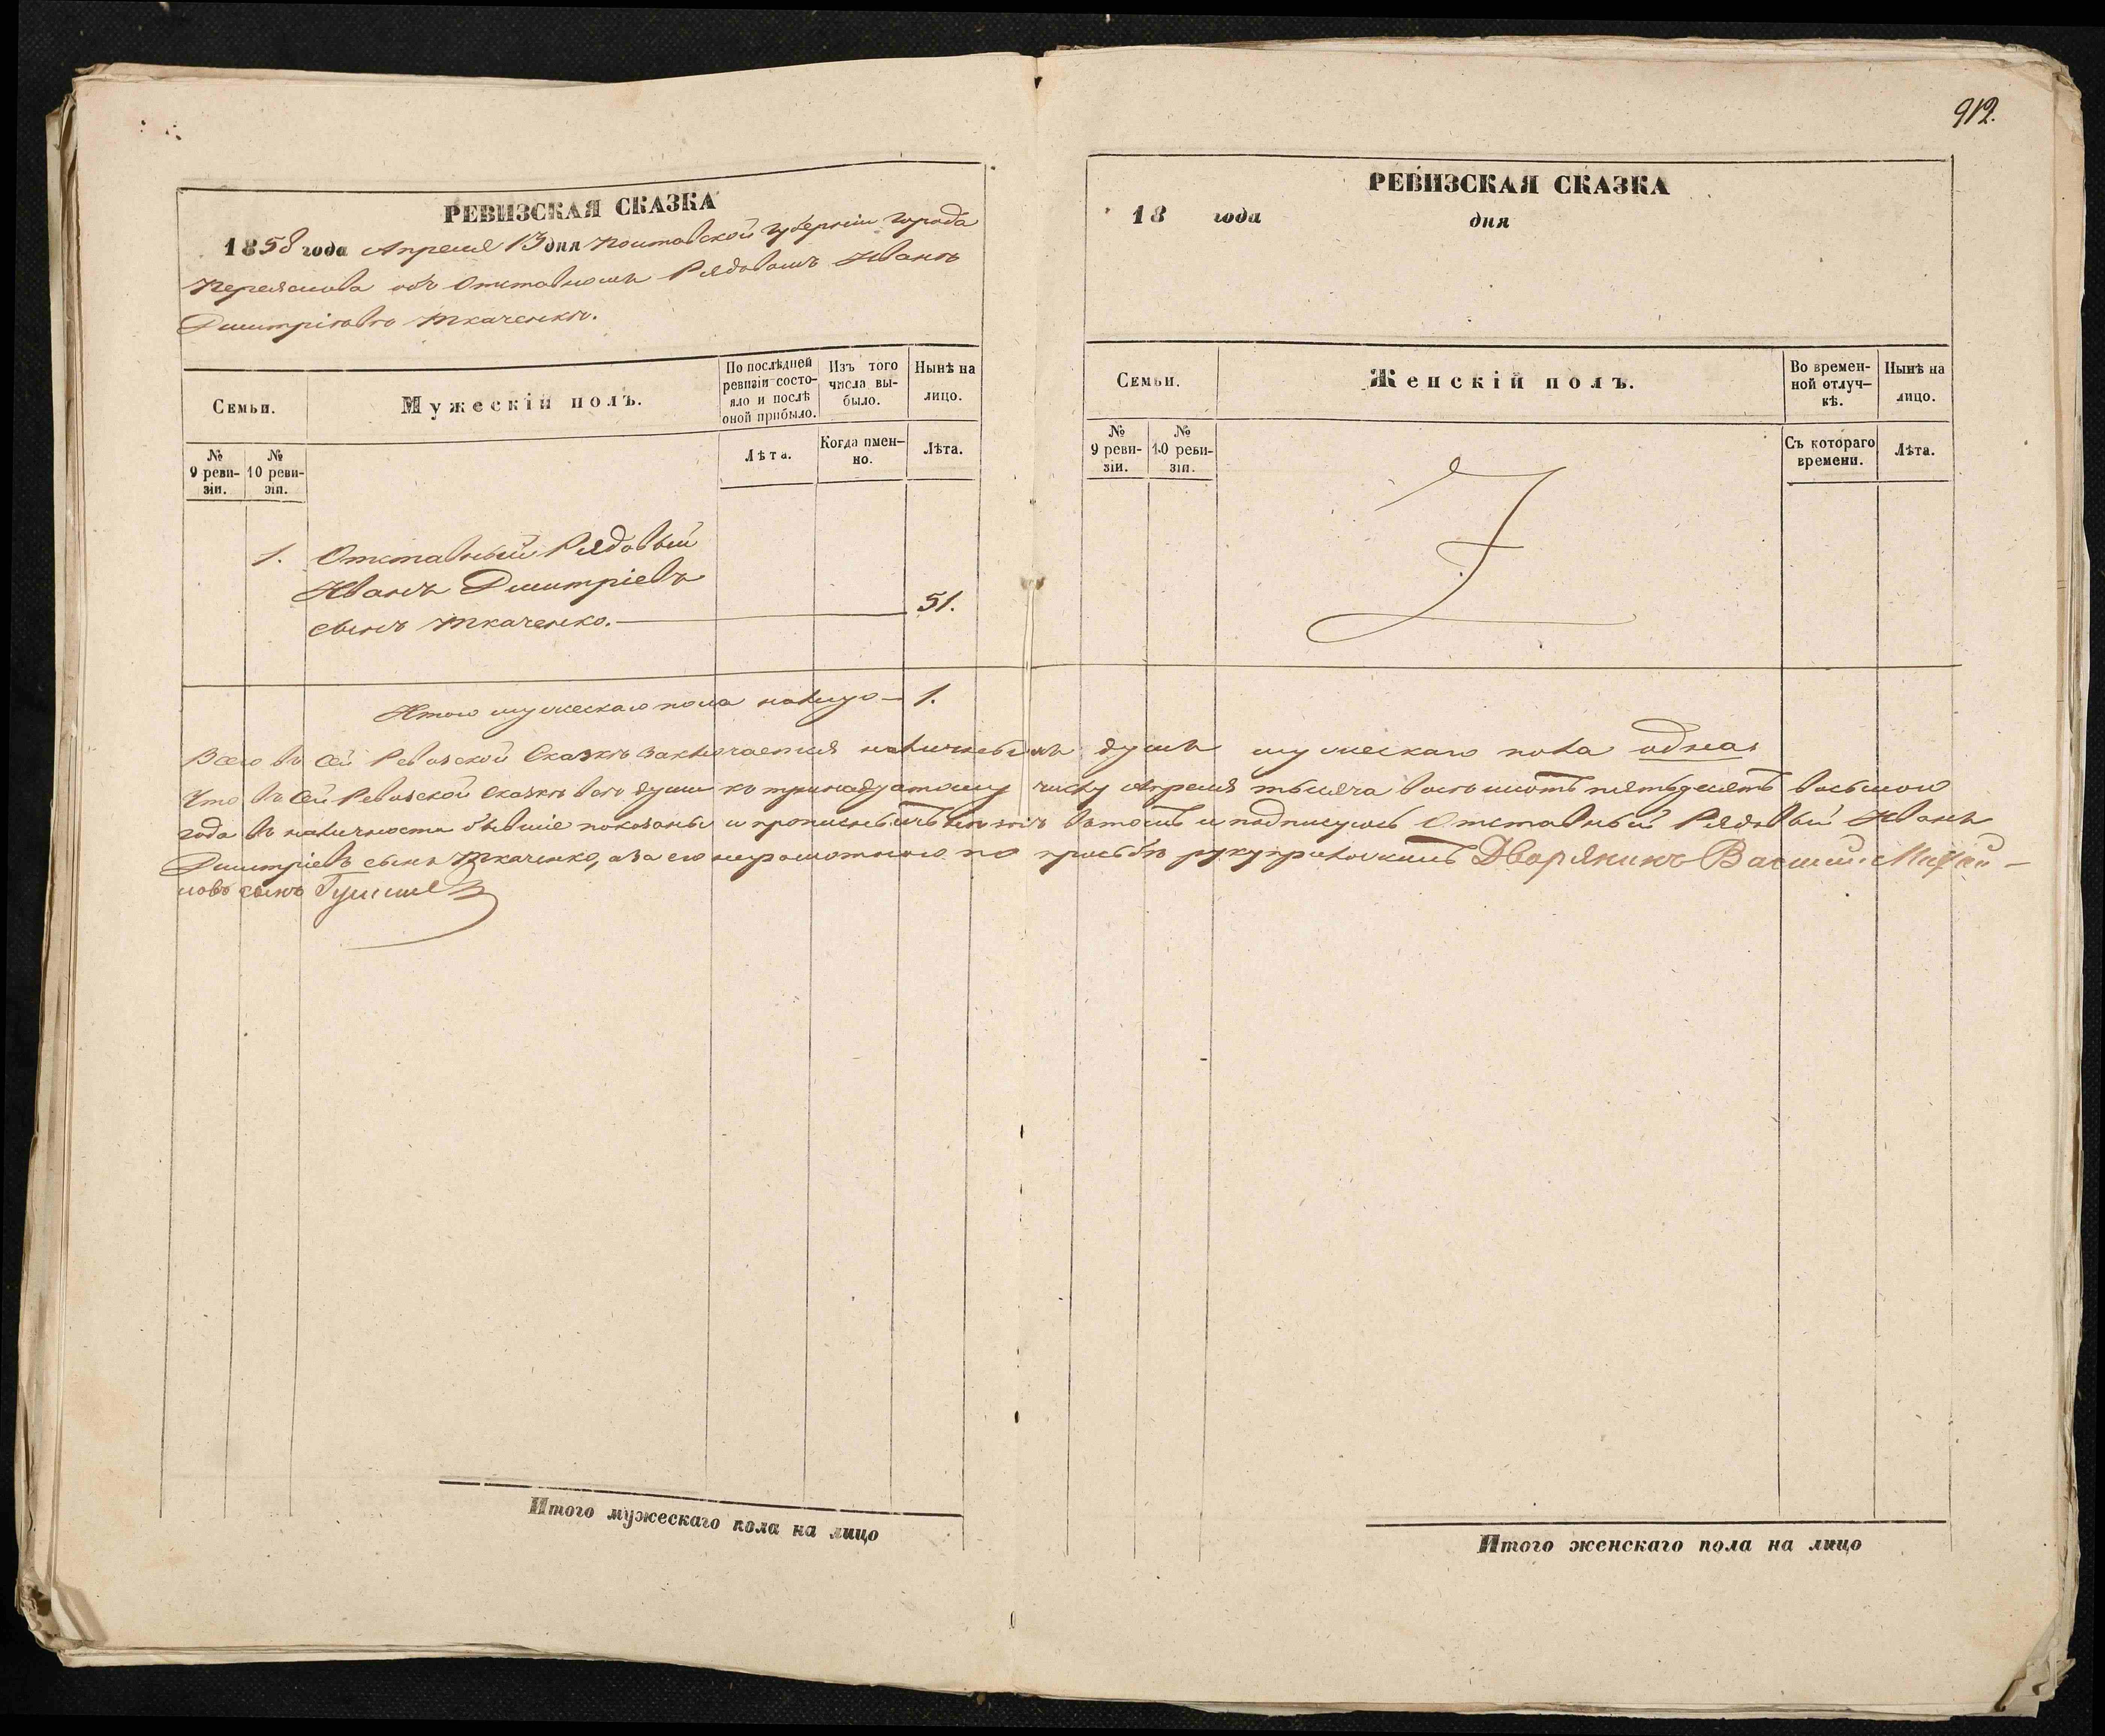 912.
РЕВИЗСКАЯ СКАЗКА
1858 года Апреля 13 дня Полтавской губерніи города
Переяслова объ Отставномъ Рядовомъ Иванѣ
Дмитріевѣ Ткаченкѣ.
Семьи.
Мужескій полъ.
По послѣдней ревизіи состояло и послѣ оной прибыло.
Изъ того числа выбыло.
Нынѣ на лицо.
№ 9 ревизіи.
№ 10 ревизіи.
Лѣта.
Когда именно.
Лѣта.
1. Отставный Рядовый
Иванъ Дмитріевъ
сынъ Ткаченко. 51.
Итого мужескаго пола налицо 1.
РЕВИЗСКАЯ СКАЗКА
18 года дня
Семьи.
Женскій полъ.
Во временной отлучкѣ.
Нынѣ на лицо.
№ 9 ревизіи.
№ 10 ревизіи.
Съ котораго времени.
Лѣта.
Всего въ сей Ревизской Сказкѣ заключается наличныхъ душъ мужескаго пола одна.
Что въ сей Ревизской сказкѣ всѣ души къ тринадцатому числу Апреля тысяча восемьсотъ пятьдесятъ восьмого
года въ наличности бывшіе показаны и прописныхъ нѣтъ въ томъ и подписуюсь Отставный Рядовый Иванъ
Дмитріевъ сынъ Ткаченко, а за его неграмотного по прозьбѣ руку приложилъ Дворянинъ Василий
сынъ
Итого мужескаго пола на лицо
Итого женскаго пола на лицо